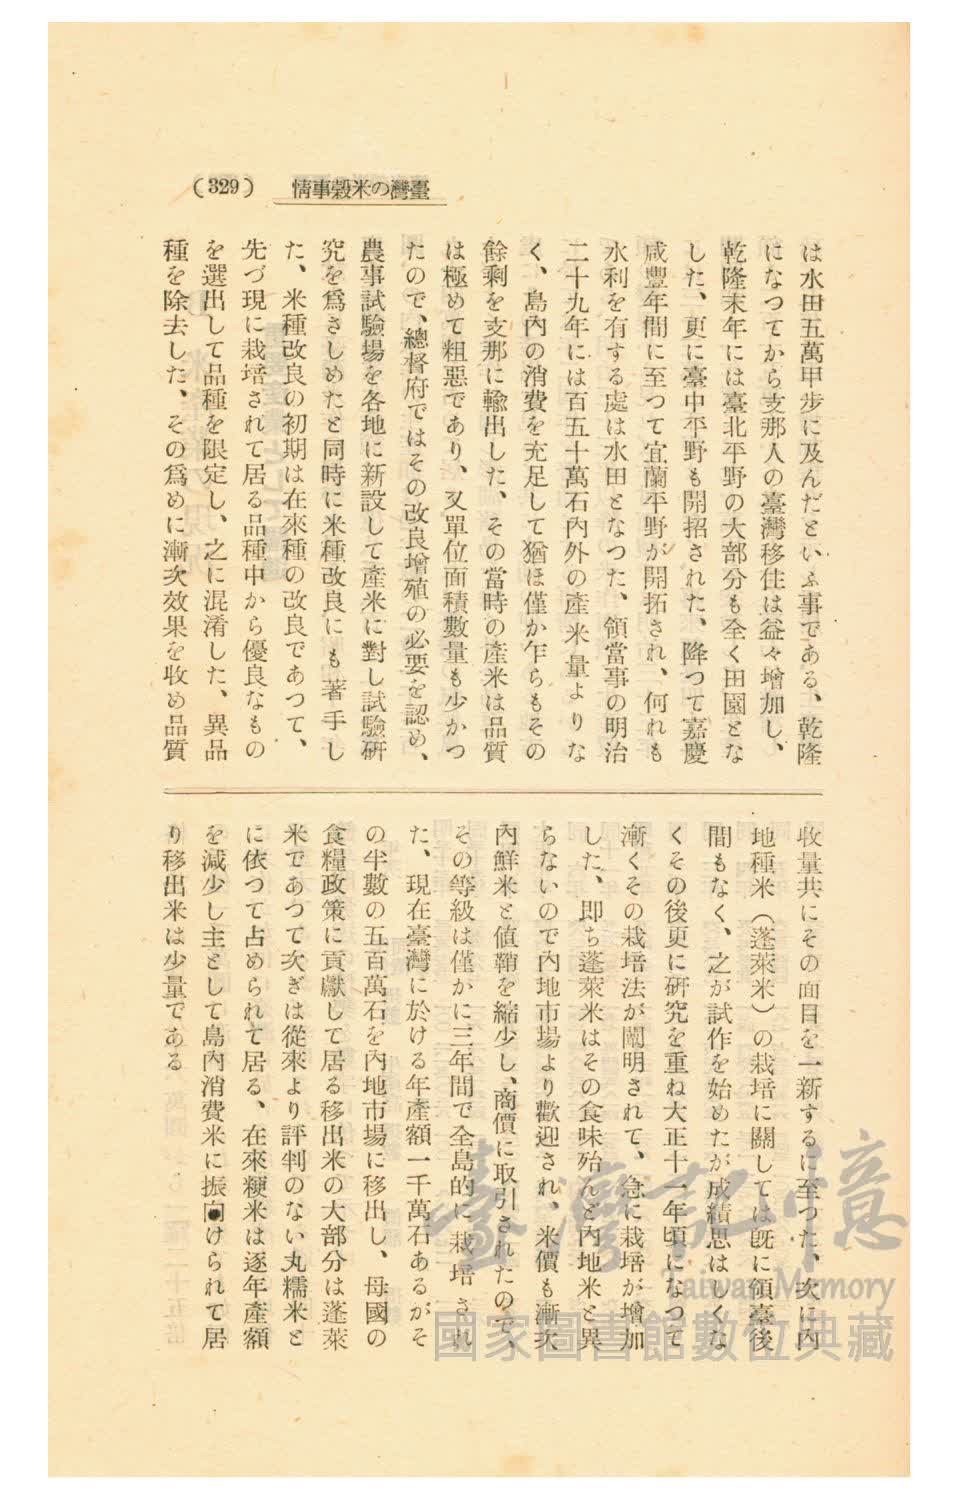 (329) 情事穀米の灣臺
は水田五萬甲步に及んだといふ事である、乾隆
になつてから支那人の臺灣移住は益々增加し、
乾隆末年には臺北平野の大部分も全く田園とな
した、更に臺中平野も開招された、降つて嘉慶
咸豐年間に至つて宜蘭平野が開拓され、何れも
水利を有する處は水田となつた、領當事の明治
二十九年には百五十萬石內外の產米量よりな
く、島內の消費を充足して猶ほ僅か乍らもその
餘剩を支那に輸出した、その當時の產米は品質
は極めて粗惡であり、又單位面積數量も少かつ
たので、總督府ではその改良增殖の必要を認め、
農事試驗場を各地に新設して產米に對し試驗硏
究を爲さしめたと同時に米種改良にも著手し
た、米種改良の初期は在來種の改良であつて、
先づ現に栽培されて居る品種中から優良なもの
を選出して品種を限定し、之に混淆した、異品
種を除去した、その爲めに漸次效果を收め品質
收量共にその面目を一新するに至つた、次に內
地種米（蓬萊米）の栽培に關しては旣に領臺後
間もなく、之が試作を始めたが成績思はしくな
くその後更に硏究を重ね大正十一年頃になつて
漸くその栽培法が闡明されて、急に栽培が增加
した、卽ち蓬萊米はその食味殆んど內地米と異
らないので內地市場より歡迎され、米價も漸次
內鮮米と値鞘を縮少し、商價に取引されたので、
その等級は僅かに三年間で全島的に栽培され
た、現在臺灣に於ける年產額一千萬石あるがそ
の半數の五百萬石を內地市場に移出し、母國の
食糧政策に貢獻して居る移出米の大部分は蓬萊
米であつて次ぎは從來より評判のない丸糯米と
に依つて占められて居る、在來粳米は逐年產額
を減少し主として島內消費米に振向けられて居
り移出米は少量である
臺灣記憶
Taiwan Memory
國家圖書館數位典藏